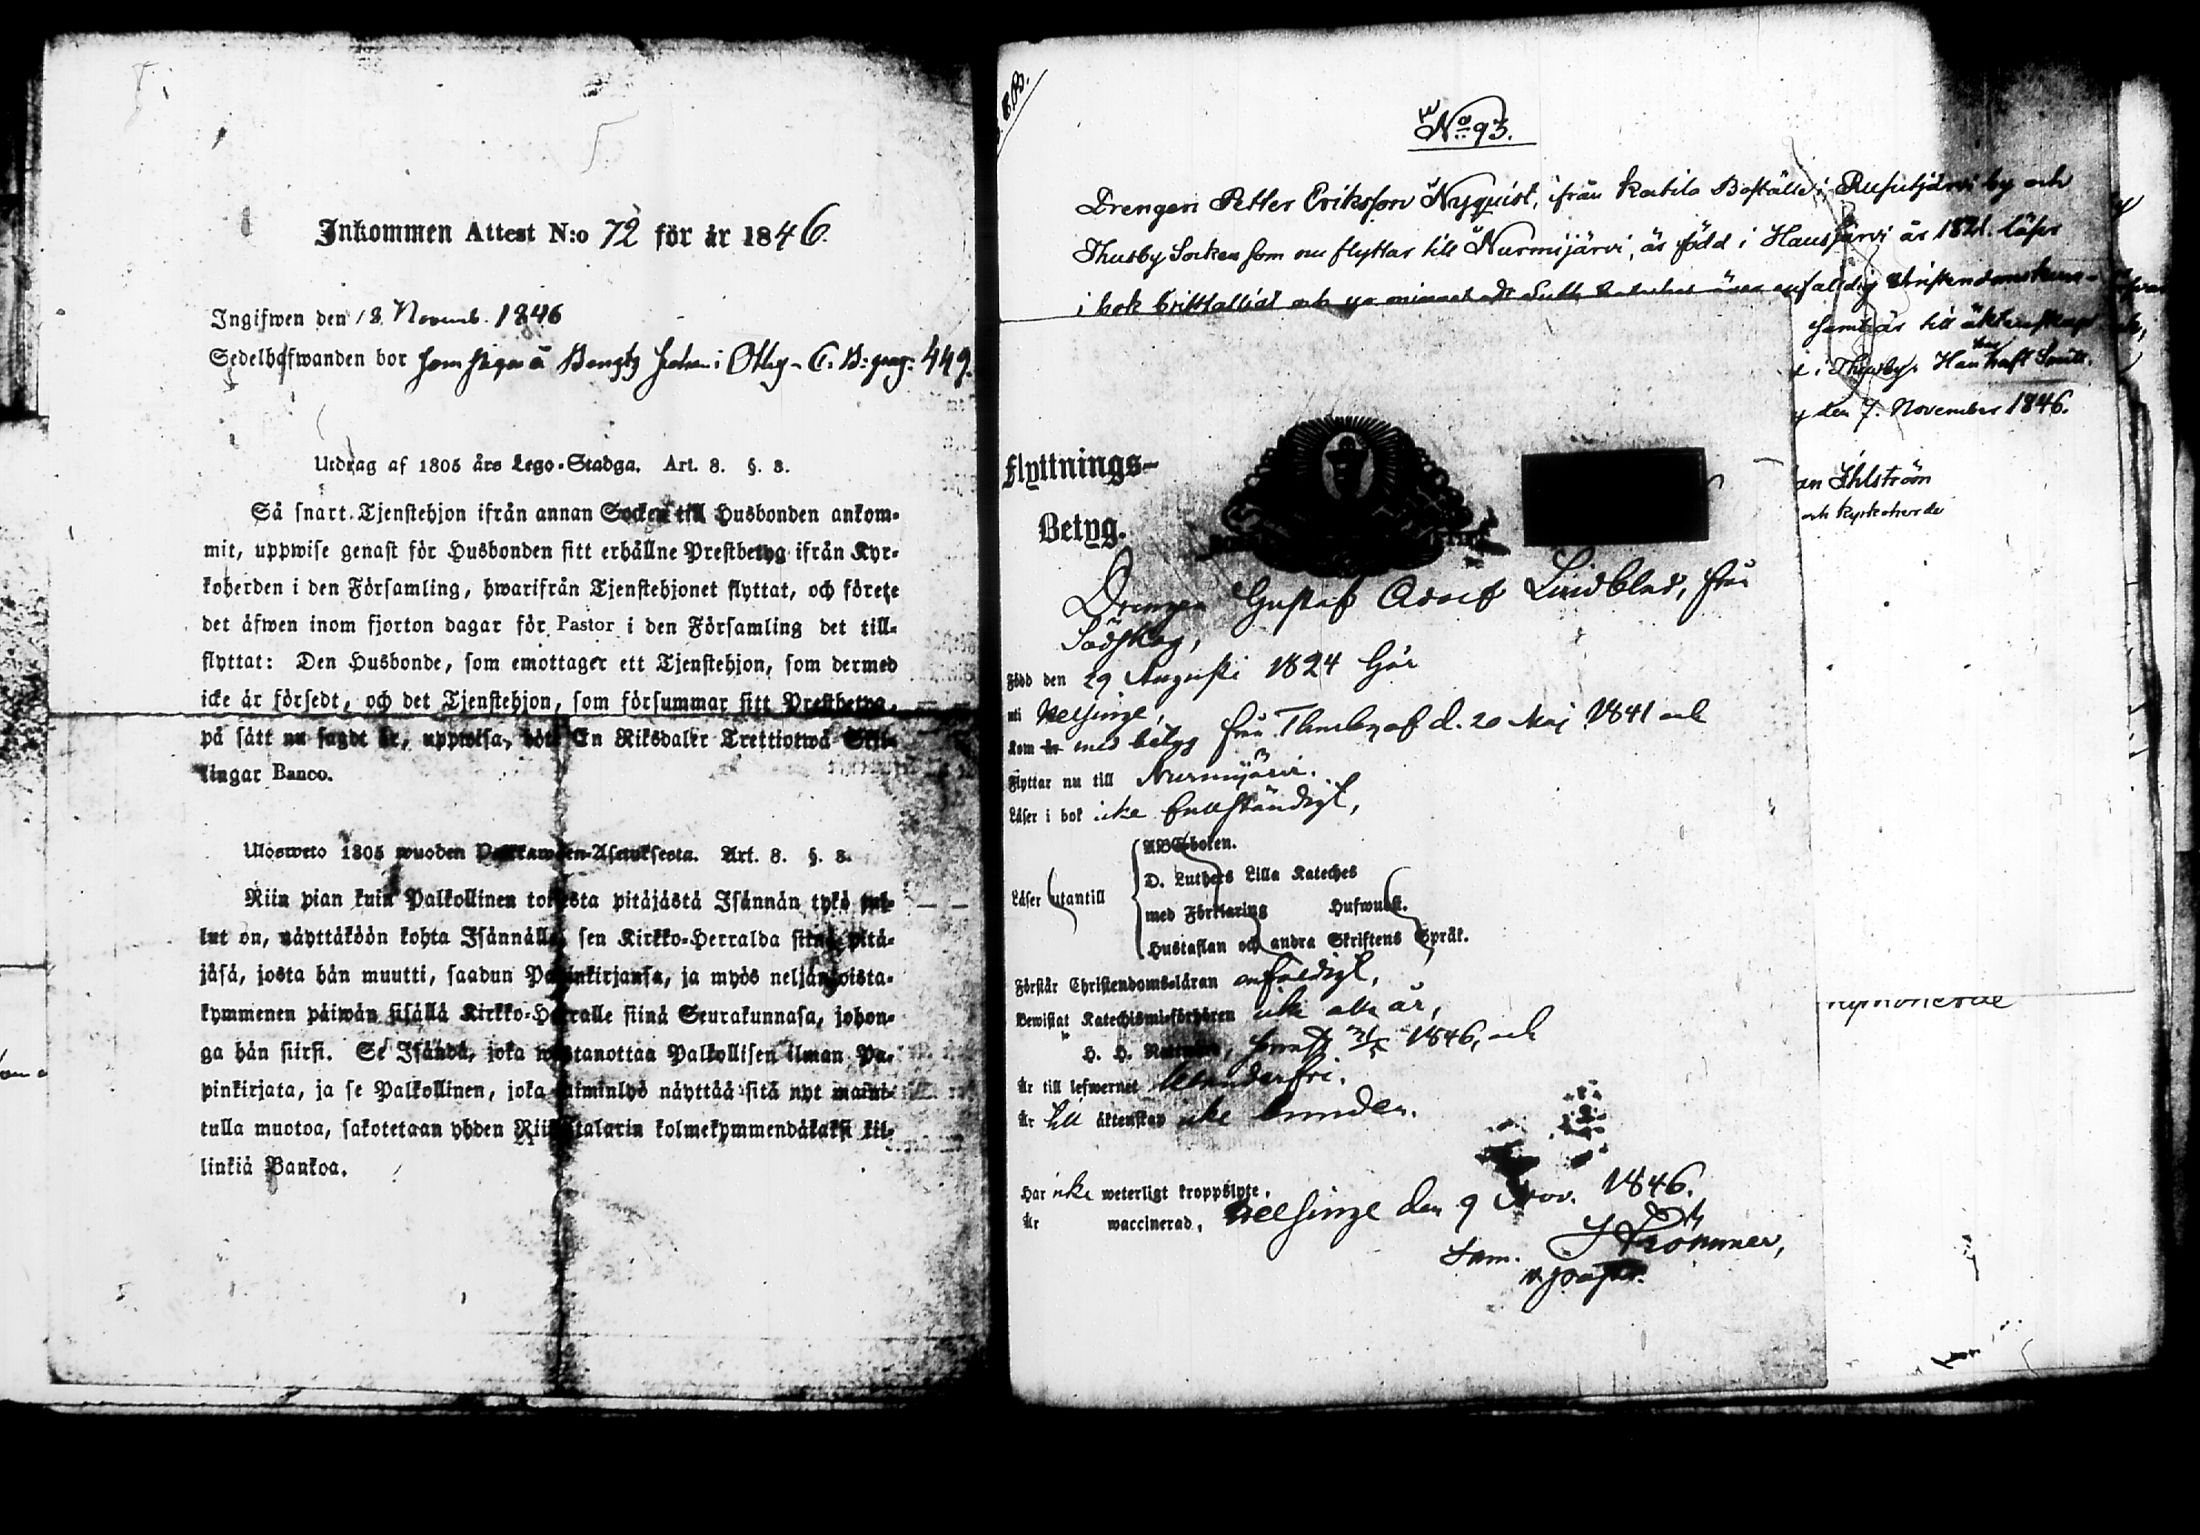 Inkommen Attest N:o 72 för år 1846.
Ingifwen den 18 Novemb. 1846
Sedelhafwanden bor
449.
Utdrag af 1805 års Lego-Stadga. Art. 8. §. 8.
Så snart Tjenstehjon ifrån annan Socken till Husbonden ankom-
mit, uppwise genast för Husbonden sitt erhållne Prestbetyg ifrån Kyr-
koherden i den Församling, hwarifrån Tjenstehjonet flyttat, och förete
det äfwen inom fjorton dagar för Pastor i den Församling det till-
flyttat: Den Husbonde, som emottager ett Tjenstehjon, som dermed
icke är försedt, och det Tjenstehjon, som försummar sitt Prestbetyg,
på sått nu sagdt är, uppwisa, böte En Riksdaler Trettiotwå Skil-
lingar Banco.
Ulosweto 1805 wuoden Palkkawäen-Asetuksesta. Art. 8. §. 8.
Niin pian kuin Palkollinen toisesta pitäjästä Isännän tykö tul-
lut on, näyttäköön kohta Isännälle, sen Kirkko-Herralda siinä pitä-
jäsä, josta hän muutti, saadun Papinkirjansa, ja myös neljäntoista-
kymmenen päiwän sisällä Kirkko-Herralle siinä Seurakunnasa, johon-
ga hän siirsi. Se Isändä, joka wastanottaa Palkollisen ilman Pa-
pinkirjata, ja se Palkollinen, joka laiminlyö näyttää sitä nyt maini-
tulla muotoa, sakotetaan yhden Riikintalarin kolmekymmendäkaksi kil-
linkiä Bankoa.
No 93.
Drengen Petter Eriksson Nyquist, ifrån Katila Boställe i Rusutjärvi by och
Thusby Socken som nu flyttar till Nurmijärvi, är född i Hausjärvi år 1821. läser
i bok
samt är till äktenskap
i Thusby. Han haft
den 7. November 1846.
Ihlström
och kyrkoherde
Flyttnings-
Betyg.
Drengen Gustaf Adolf Lindblad, från
Södskog,
Född den 29 Augusti 1824 här
uti Helsinge,
kom med betyg från Thusby af d. 20 Maj 1841 och
Flyttar nu till Nurmijärvi.
Läser i bok icke fullständigt,
Läser utantill
ABC-boken.
D. Luthers Lilla Kateches
med Förklaring Hufwudst.
Hustaflan och andra Skriftens Språk.
Förstår Christendomsläran enfaldigt,
Bewistat Katechismi-förhören icke alla år,
H. H. Nattward, 1846, och
Är till lefwernet klanderfri.
Är till äktenskap icke bunden.
Har icke weterligt kroppslyte.
Är waccinerad, Helsinge den 9 Nov. 1846.